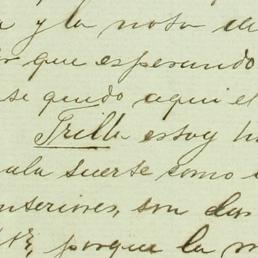 y la nota de
que esperando
se quedo aqui el
Trilla estoy
suerte como
anteriores, son dos
porque la